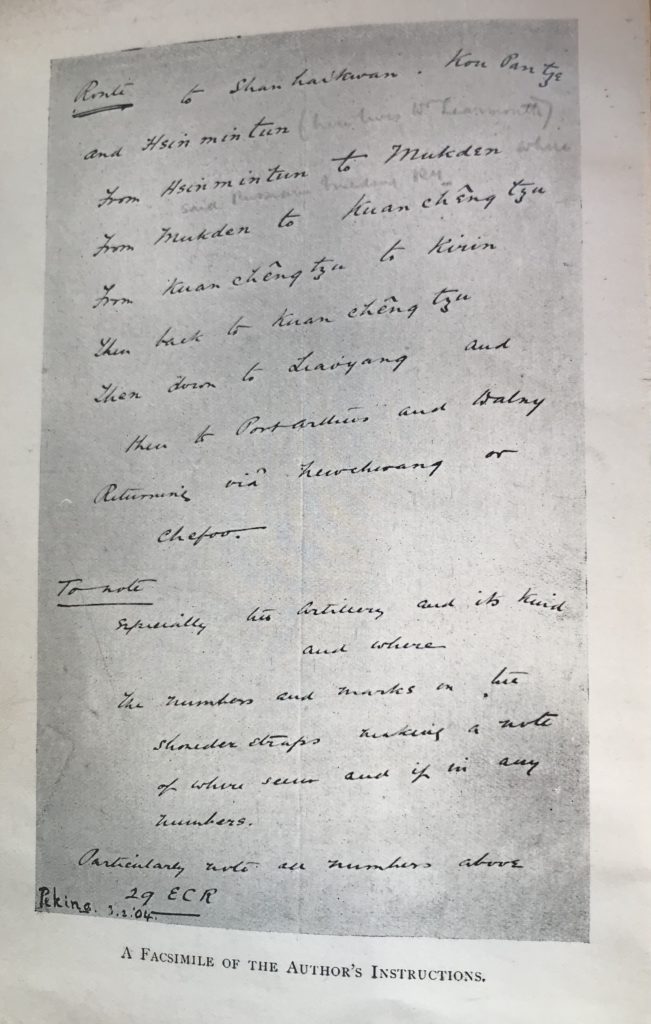 Route to Shanhaikwan. Kou Pan tze
and Hsin min tun (here lives Dr Learmonth)
From Hsin min tun to Mukden where
said Russians friendly
From Mukden to Kuan chêng tzu
From Kuan chêng tzu to Kirin
Then back to Kuan chêng tzu
Then down to Liaoyang and
then to Port Arthur and Dalny
Returning viâ Newchwang or
Chefoo.
To note
Especially the Artillery and its kind
and where
The numbers and marks on the
shoulder straps making a note
of where seen and if in any
numbers.
Particularly note all numbers above
29 E C R
Peking. 3.2.'04.
A Facsimile of the Author's Instructions.